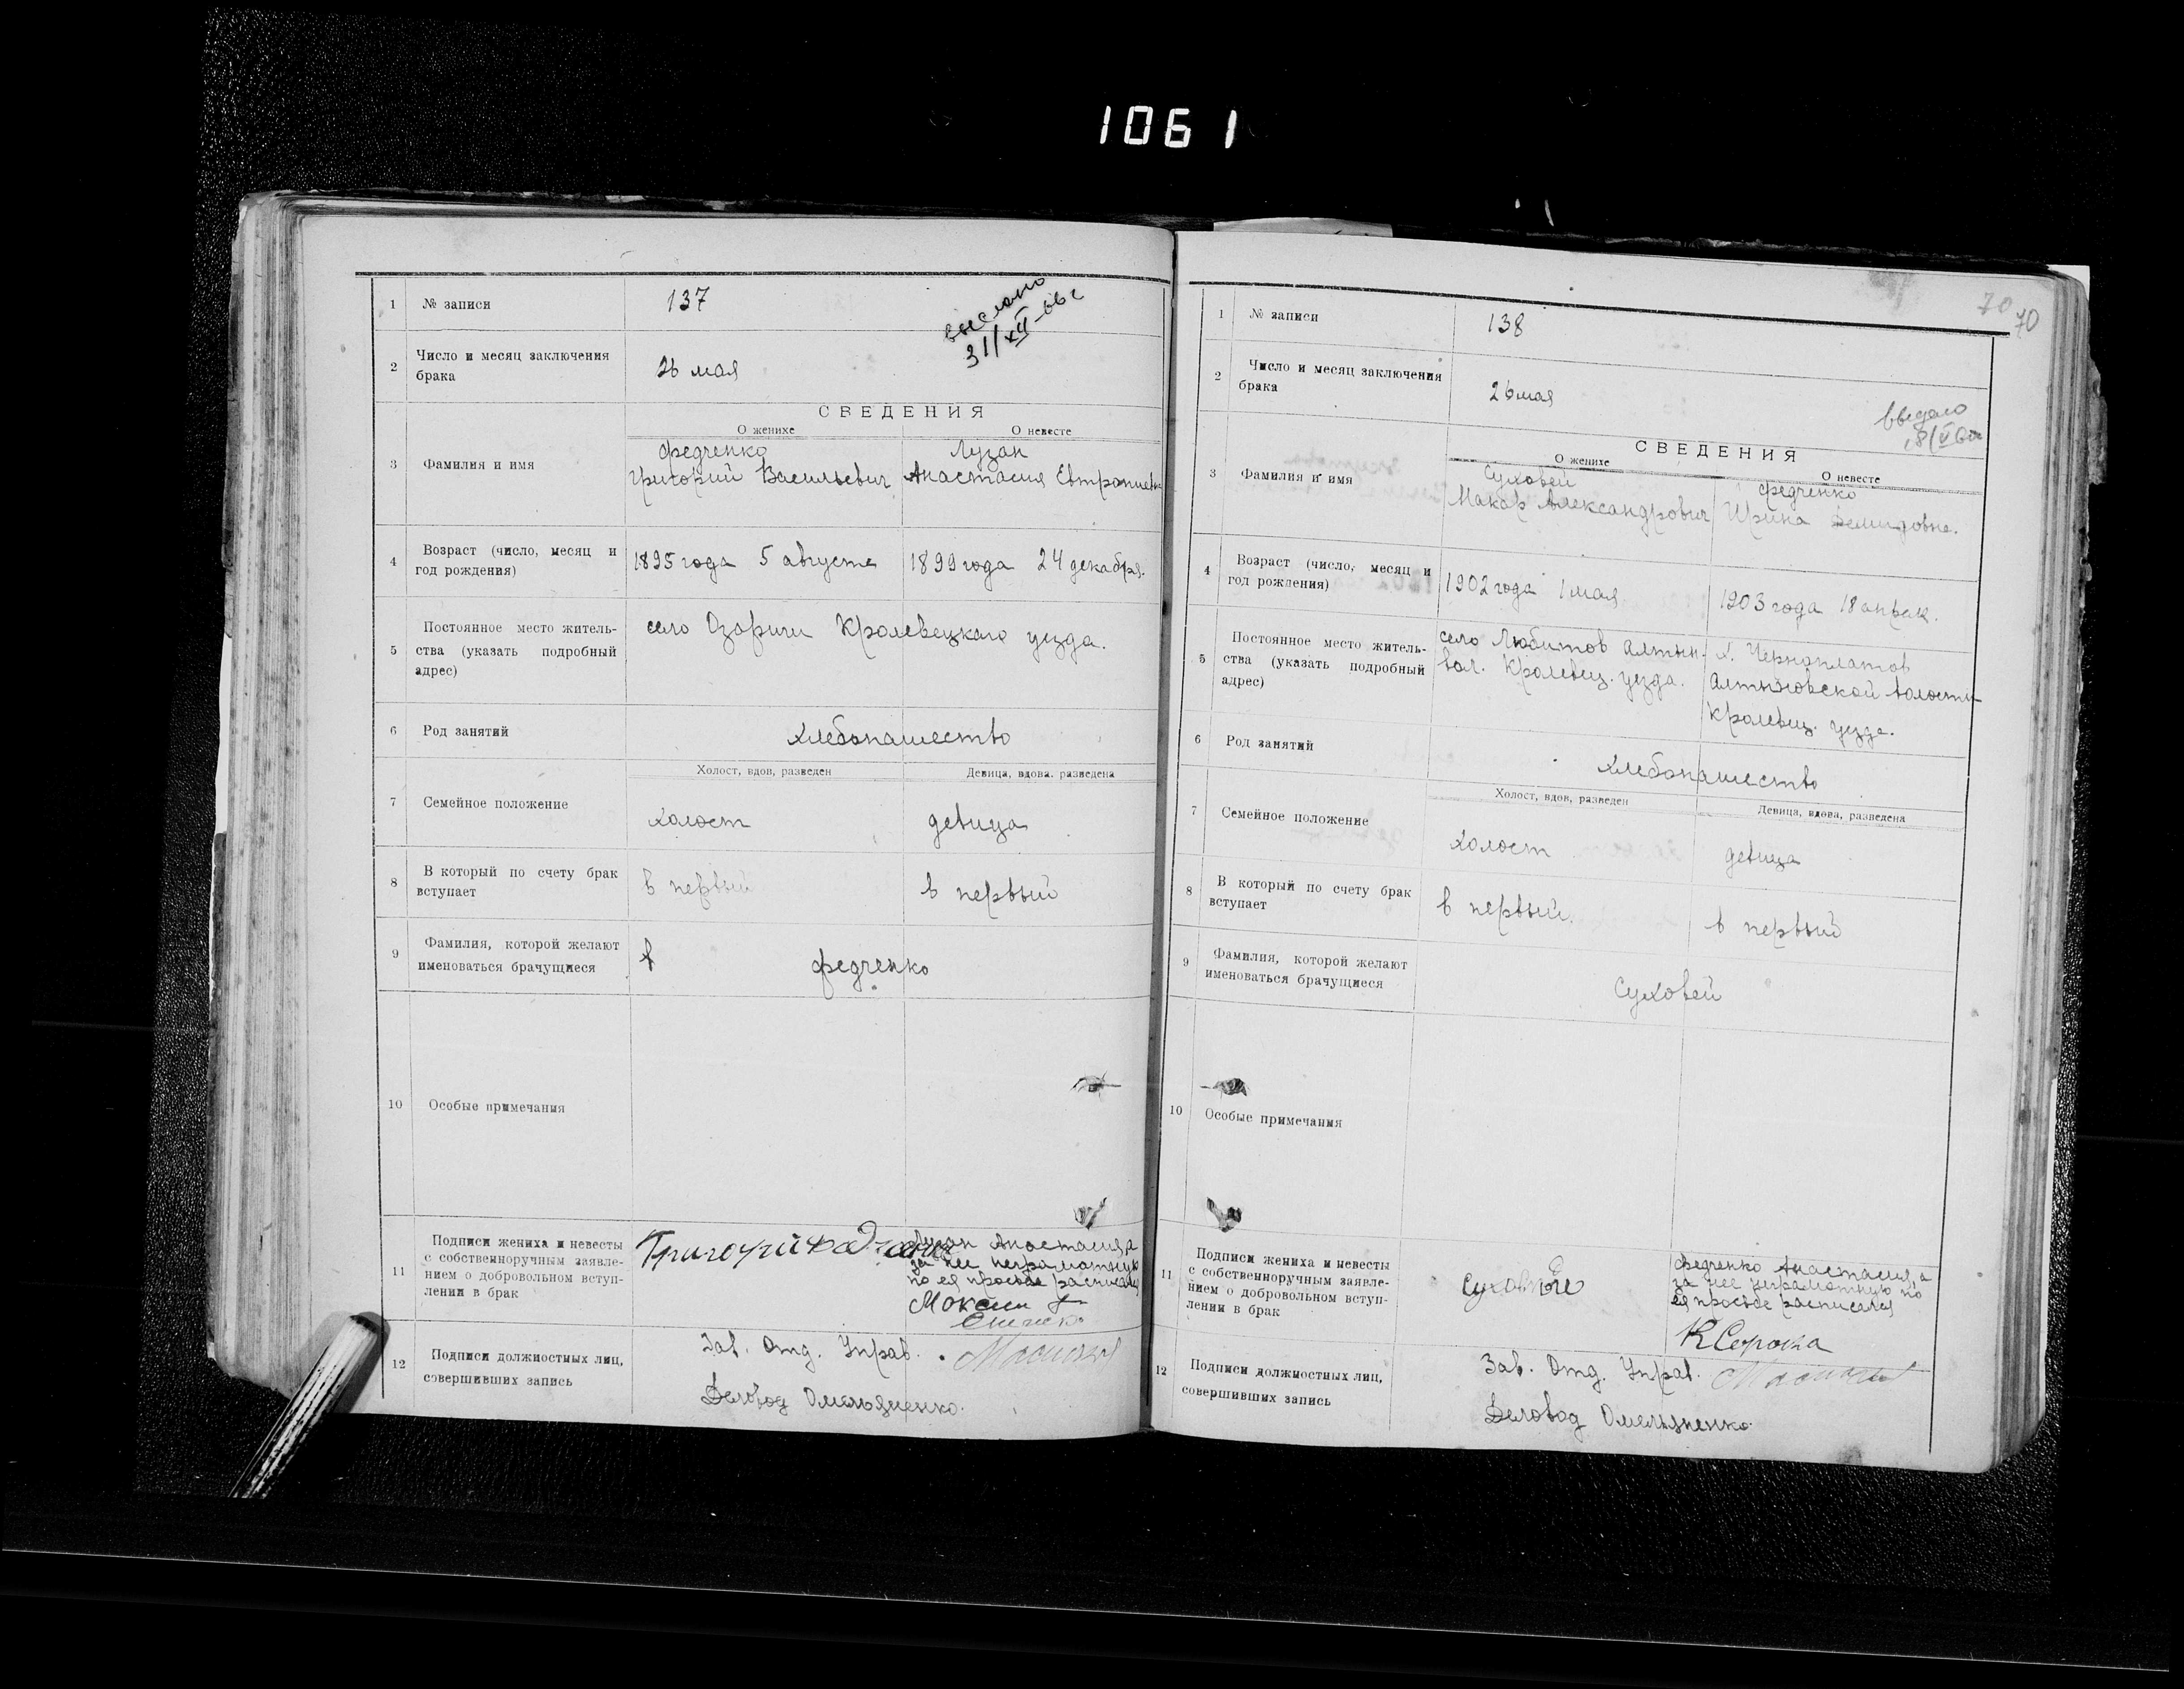 1061
1 № записи 137
выслано
31/XII-66г
2 Число и месяц заключения
брака
26 мая
СВЕДЕНИЯ
О женихе О невесте
3 Фамилия и имя
Федченко Лузан
Григорий Васильевич Анастасия
4 Возраст (число, месяц и
год рождения)
1895 года 5 августа 1899 года 24 декабря.
5 Постоянное место житель-
ства (указать подробный
адрес)
село Озаричи Кролевецкаго уезда.
6 Род занятий хлебопашество
Холост, вдов, разведен Девица, вдова. разведена
7 Семейное положение
холост девица
8 В который по счету брак
вступает
в первый в первый
9 Фамилия, которой желают
именоваться брачущиеся
в Федченко
10 Особые примечания
11 Подписи жениха и невесты
с собственноручным заявле-
нием о добровольном вступ-
лении в брак
Григорий Федченко
Лузан Анастасия, а
за нее неграмотную
по ея просьбе расписался
12 Подписи должностных лиц,
совершивших запись
Зав. Отд. Управ.
Деловод Омельяненко.
70 70
1 № записи 138
2 Число и месяц заключения
брака
26 мая
СВЕДЕНИЯ
О женихе О невесте
3 Фамилия и имя
Суховей Федченко
Макар Александрович Ирина Демидовна.
4 Возраст (число, месяц и
год рождения)
1902 года 1 мая 1903 года 18 апрел.
5 Постоянное место житель-
ства (указать подробный
адрес)
село Любитов Алтын.
вол. Кролевец. уезда.
х. Черноплатов
Алтыновской волости
Кролевец. уезда.
6 Род занятий хлебопашество
Холост, вдов, разведен Девица, вдова, разведена
7 Семейное положение
холост девица
8 В который по счету брак
вступает
в первый. в первый
9 Фамилия, которой желают
именоваться брачущиеся
Суховей
10 Особые примечания
11 Подписи жениха и невесты
с собственноручным заявле-
нием о добровольном вступ-
лении в брак
Федченко Анастасия, а
за нее неграмотную по
ея просьбе расписался
К Сорока
12 Подписи должностных лиц,
совершивших запись
Зав. Отд. Управ.
Деловод Омельяненко.